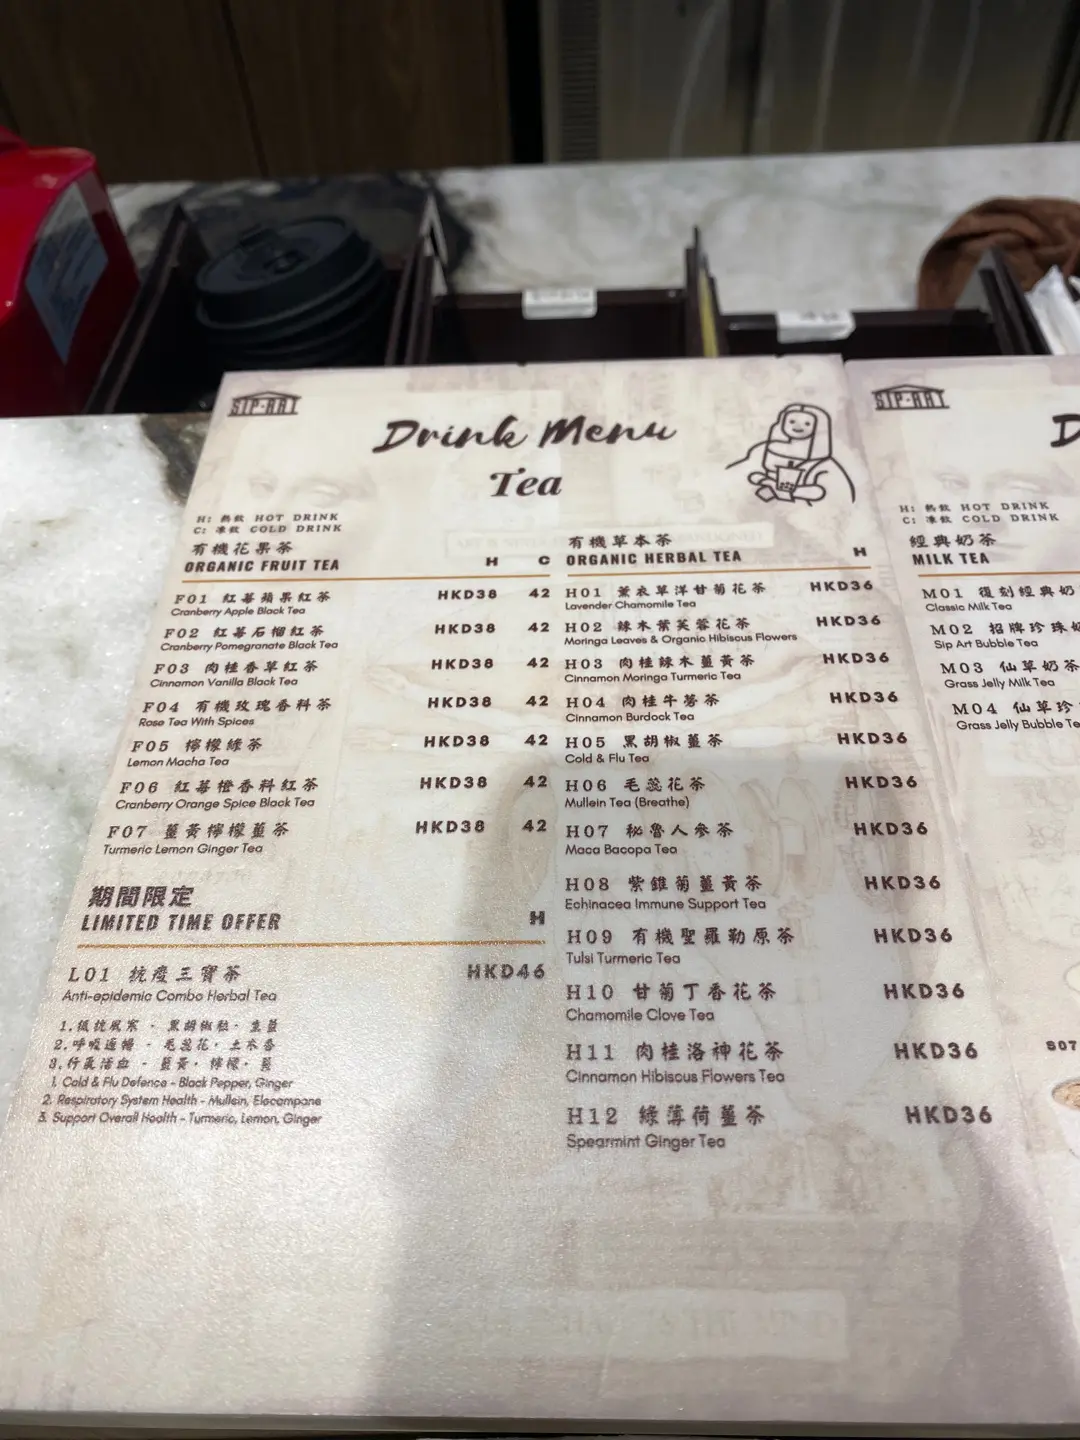 SIP·ART
Drink Menu
Tea
H: 熱飲 HOT DRINK
C: 凍飲 COLD DRINK
有機花果茶
ORGANIC FRUIT TEA H C
F01 紅莓蘋果紅茶 HKD38 42
Cranberry Apple Black Tea
F02 紅莓石榴紅茶 HKD38 42
Cranberry Pomegranate Black Tea
F03 肉桂香草紅茶 HKD38 42
Cinnamon Vanilla Black Tea
F04 有機玫瑰香料茶 HKD38 42
Rose Tea With Spices
F05 檸檬綠茶 HKD38 42
Lemon Macha Tea
F06 紅莓橙香料紅茶 HKD38 42
Cranberry Orange Spice Black Tea
F07 薑黃檸檬薑茶 HKD38 42
Turmeric Lemon Ginger Tea
期間限定
LIMITED TIME OFFER H
L01 抗疫三寶茶 HKD46
Anti-epidemic Combo Herbal Tea
1.抵抗風寒 - 黑胡椒粒, 生薑
2.呼吸通暢 - 毛蕊花, 土木香
3.行氣活血 - 薑黃, 檸檬, 薑
1. Cold & Flu Defence - Black Pepper, Ginger
2. Respiratory System Health - Mullein, Elecampane
3. Support Overall Health - Turmeric, Lemon, Ginger
有機草本茶
ORGANIC HERBAL TEA H
H01 薰衣草洋甘菊花茶 HKD36
Lavender Chamomile Tea
H02 辣木葉芙蓉花茶 HKD36
Moringa Leaves & Organic Hibiscus Flowers
H03 肉桂辣木薑黃茶 HKD36
Cinnamon Moringa Turmeric Tea
H04 肉桂牛蒡茶 HKD36
Cinnamon Burdock Tea
H05 黑胡椒薑茶 HKD36
Cold & Flu Tea
H06 毛蕊花茶 HKD36
Mullein Tea (Breathe)
H07 秘魯人參茶 HKD36
Maca Bacopa Tea
H08 紫錐菊薑黃茶 HKD36
Echinacea Immune Support Tea
H09 有機聖羅勒原茶 HKD36
Tulsi Turmeric Tea
H10 甘菊丁香花茶 HKD36
Chamomile Clove Tea
H11 肉桂洛神花茶 HKD36
Cinnamon Hibiscus Flowers Tea
H12 綠薄荷薑茶 HKD36
Spearmint Ginger Tea
SIP·ART
D
H: 熱飲 HOT DRINK
C: 凍飲 COLD DRINK
經典奶茶
MILK TEA
M01 復刻經典奶
Classic Milk Tea
M02 招牌珍珠奶
Sip Art Bubble Tea
M03 仙草奶茶
Grass Jelly Milk Tea
M04 仙草珍
Grass Jelly Bubble Te
S07